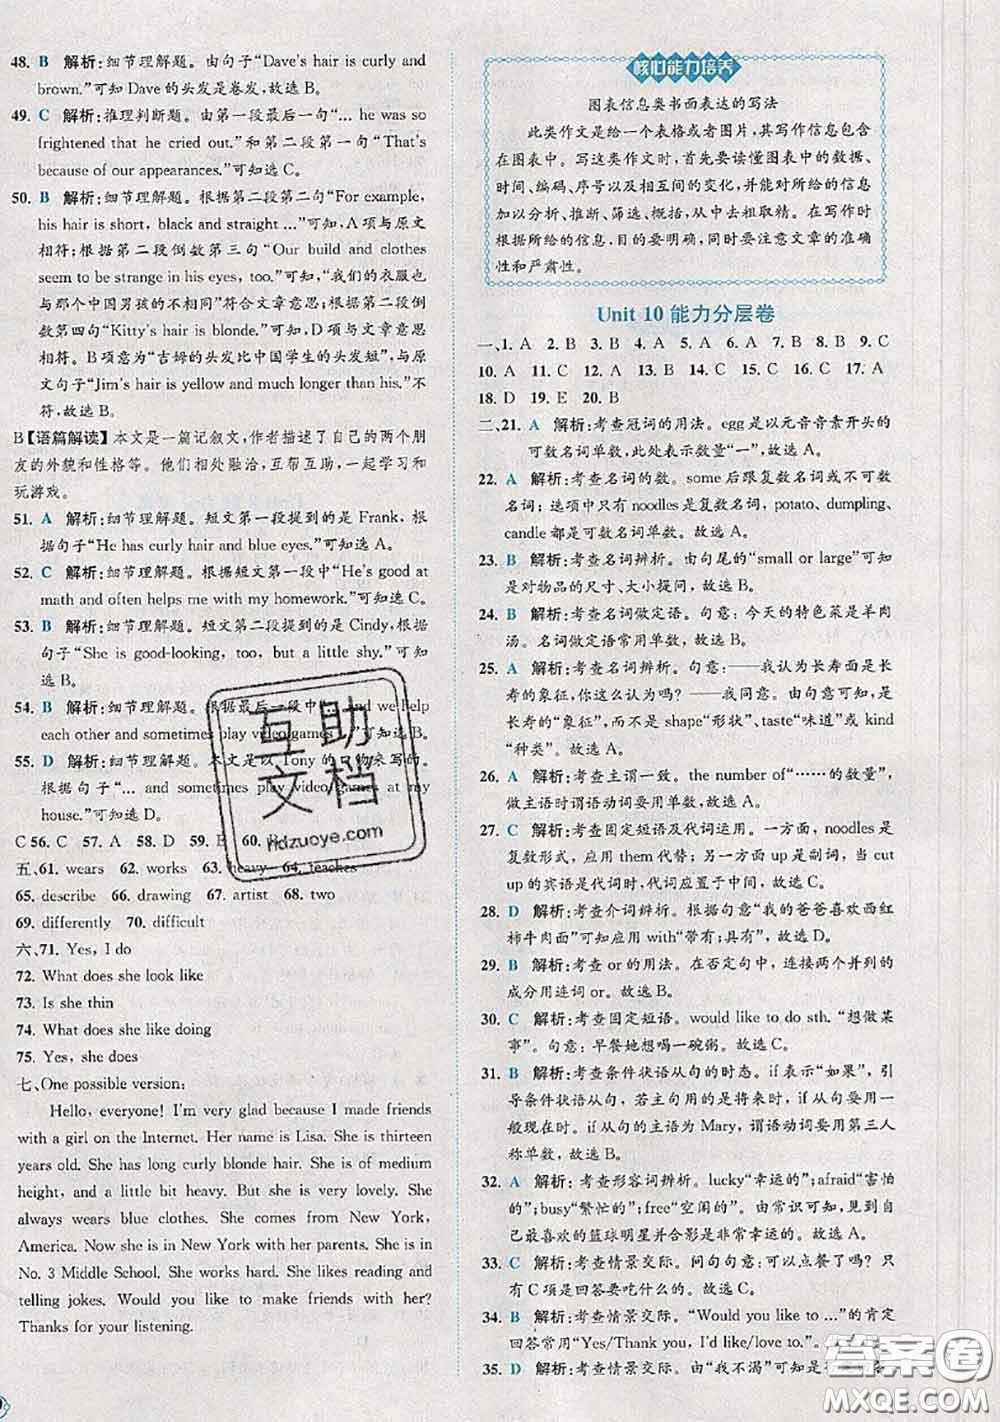 48. B 解析:细节理解题。由句子“Dave's hair is curly and
brown.”可知 Dave 的头发是卷发,故选 B。
49. C 解析:推理判断题。由第一段最后一句“... he was so
frightened that he cried out.”和第二段第一句“That's
because of our appearances.”可知选 C。
50. B 解析:细节理解题。根据第二段第二句“For example,
his hair is short, black and straight ...”可知,A 项与原文
相符;根据第二段倒数第三句“Our build and clothes
seem to be strange in his eyes, too.”可知,“我们的衣服也
与那个中国男孩的不一样”符合文章意思;根据第二段倒数
第四句“Kitty's hair is blonde.”可知,D 项与文章意思
相符。B 项意为“吉姆的头发比中国学生的头发短”,与原
文句子“Jim's hair is yellow and much longer than his.”不
符,故选 B。
B【语篇解读】本文是一篇记叙文,作者描述了自己的两个朋
友的外貌和性格等。他们相处融洽,互帮互助,一起学习和
玩游戏。
51. A 解析:细节理解题。短文第一段提到的是 Frank,根
据句子“He has curly hair and blue eyes.”可知选 A。
52. C 解析:细节理解题。根据短文第一段中“He's good at
math and often helps me with my homework.”可知选 C。
53. B 解析:细节理解题。短文第二段提到的是 Cindy,根据
句子“She is good-looking, too, but a little shy.”可知
选 B。
54. B 解析:细节理解题。根据最后一段中“... and we help
each other and sometimes play video games ...”可知选 B。
55. D 解析:细节理解题。本文是以 Tony 的口吻来写的。
根据句子“... and sometimes play video games at my
house.”可知选 D。
C 56. C 57. A 58. D 59. E 60. B
五、61. wears 62. works 63. heavy 64. teaches
65. describe 66. drawing 67. artist 68. two
69. differently 70. difficult
六、71. Yes, I do
72. What does she look like
73. Is she thin
74. What does she like doing
75. Yes, she does
七、One possible version:
Hello, everyone! I'm very glad because I made friends
with a girl on the Internet. Her name is Lisa. She is thirteen
years old. She has long curly blonde hair. She is of medium
height, and a little bit heavy. But she is very lovely. She
always wears blue clothes. She comes from New York,
America. Now she is in New York with her parents. She is in
No. 3 Middle School. She works hard. She likes reading and
telling jokes. Would you like to make friends with her?
Thanks for your listening.
核心能力培养
图表信息类书面表达的写法
此类作文是给一个表格或者图片,其写作信息包含
在图表中。写这类作文时,首先要读懂图表中的数据、
时间、编码、序号以及相互间的变化,并能对所给的信息
加以分析、推断、筛选、概括,从中去粗取精。在写作时
根据所给的信息,目的要明确,同时要注意文章的准确
性和严肃性。
Unit 10 能力分层卷
一、1. A 2. B 3. B 4. C 5. A 6. B 7. B 8. A 9. C
10. A 11. C 12. C 13. B 14. C 15. A 16. C 17. A
18. D 19. E 20. B
二、21. A 解析:考查冠词的用法。egg 是以元音音素开头的
可数名词单数,此处表示数量“一”,故选 A。
22. A 解析:考查名词的数。some 后跟复数名词或不可数
名词;选项中只有 noodles 是复数名词,potato, dumpling,
candle 都是可数名词单数,故选 A。
23. B 解析:考查名词辨析。由句尾的“small or large”可知
是对物品的尺寸、大小提问,故选 B。
24. B 解析:考查名词做定语。句意:今天的特色菜是羊肉
汤。名词做定语常用单数,故选 B。
25. A 解析:考查名词辨析。句意:——我认为长寿面是长
寿的象征,你这么认为吗?——我同意。由句意可知,是
长寿的“象征”,而不是 shape“形状”、taste“味道”或 kind
“种类”。故选 A。
26. A 解析:考查主谓一致。the number of“……的数量”,
做主语时谓语动词要用单数,故选 A。
27. C 解析:考查固定短语及代词运用。一方面,noodles 是
复数形式,应用 them 代替;另一方面,up 是副词,当 cut
up 的宾语是代词时,代词应置于中间,故选 C。
28. D 解析:考查介词辨析。根据句意“我的爸爸喜欢西红
柿牛肉面”可知应用 with“带有;具有”,故选 D。
29. B 解析:考查 or 的用法。在否定句中,连接两个并列的
成分用连词 or。故选 B。
30. C 解析:考查固定短语。would like to do sth. “想做某
事”。句意:早餐她想喝一碗粥。故选 C。
31. B 解析:考查条件状语从句的时态。if 表示“如果”,引
导条件状语从句时,若主句用的是一般将来时,if 从句要用一
般现在时。if 从句的主语为 Mary,谓语动词要用第三人
称单数,故选 B。
32. A 解析:考查形容词辨析。lucky“幸运的”;afraid“害怕
的”;busy“繁忙的”;free“空闲的”。由常识可知,见到自
己最喜欢的篮球明星并合影是非常幸运的。故选 A。
33. C 解析:考查情景交际。问句句意:可以点餐了吗?只
有 C 项是回答要吃什么的。故选 C。
34. B 解析:考查情景交际。“Would you like to ...”的肯定
回答常用“Yes/Thank you, I'd like/love to.”。故选 B。
35. D 解析:考查情景交际。由“我不渴”可知是
互助
文档
hdzuoye.com
答案圈
MXQE.COM